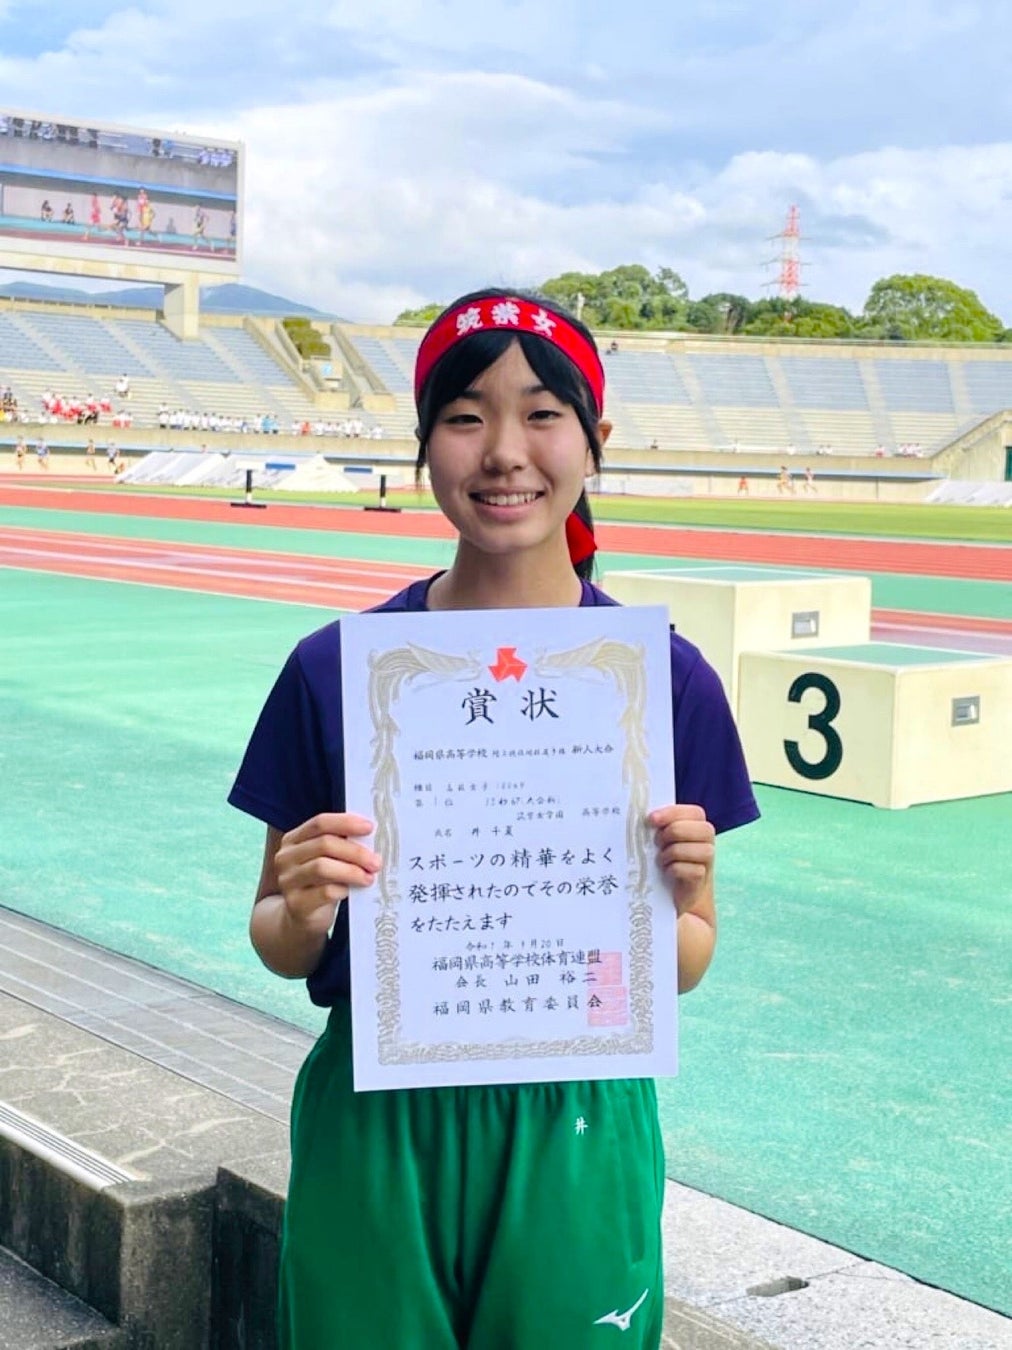 筑紫女
3
賞状
福岡県高等学校 陸上競技対校選手権 新人大会
種目
第1位
筑紫女学園 高等学校
氏名 井 千夏
スポーツの精華をよく
発揮されたのでその栄誉
をたたえます
月20日
福岡県高等学校体育連盟
会長 山田 裕二
福岡県教育委員会
井